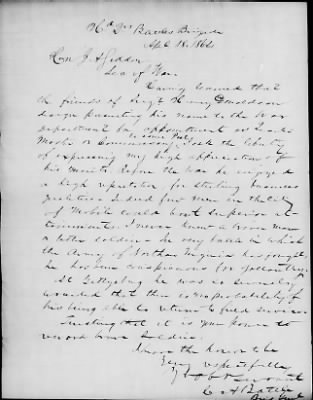 Hd Qrs Battles Brigade
Apl 18, 1864
Hon J. A Seddon
Sec of War.
Having learned that
the friends of Sergt Henry Donaldson
design presenting his name to the War
department for appointment as Quarter
Master or Commissary, I ask the liberty
of expressing my high appreciation of
his merits. Before the War he enjoyed
a high reputation for sterling business
qualities. Indeed few men in the city
of Mobile could boast superior at-
tainments. I never knew a braver man
or better soldier. In every battle in which
the Army of Northern Virginia has fought
he has been conspicuous for gallantry.
At Gettysburg he was so severely
wounded that there is no probability of
his being able to return to field service.
Trusting that it is in your power to
reward brave soldiers
I have the honor to be
Very respectfully
Yr obt servant
C. A Battle
Brig Genl